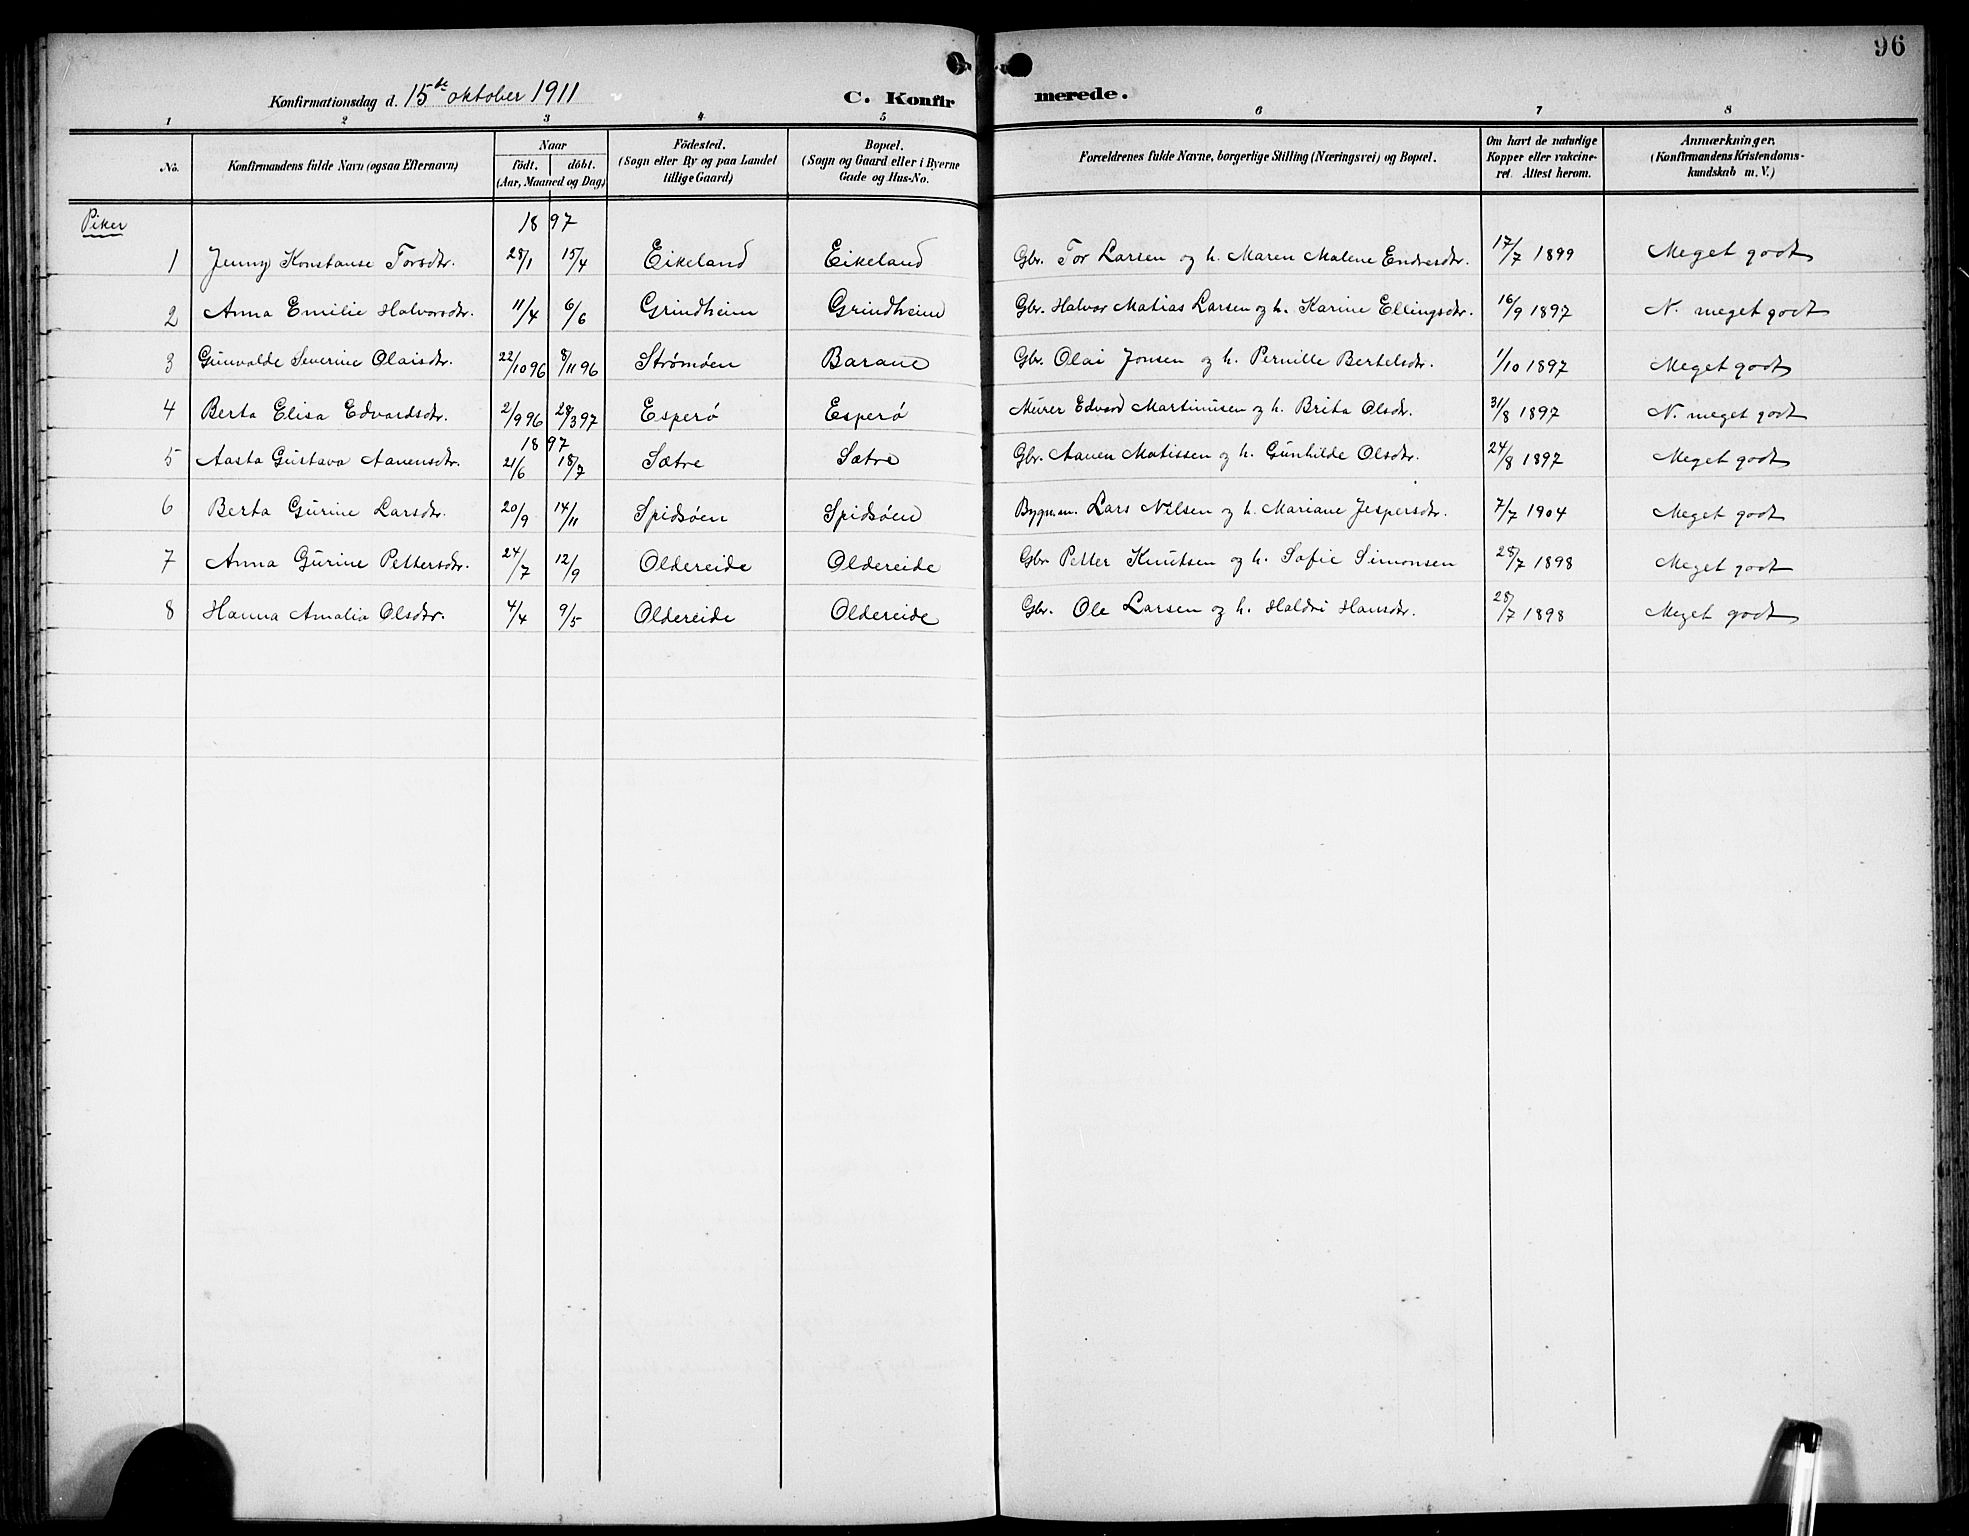 96
Konfirmationsdag d. 15de oktober 1911 C. Konfirmerede.
1 2 3 4 5 6 7 8
No. Konfirmandens fulde Navn (ogsaa Efternavn) Naar födt. döbt. (Aar, Maaned og Dag) Födested. (Sogn eller By og paa Landet tillige Gaard) Bopæl. (Sogn og Gaard eller i Byerne Gade og Hus-No. Forældrenes fulde Navne, borgerlige Stilling (Næringsvei) og Bopæl. Om havt de naturlige Kopper eller vakcineret. Attest herom. Anmærkninger. (Konfirmandens Kristendomskundskab m. V.)
Piker 1897
1 Jenny Konstanse Torsdtr. 28/1 15/4 Eikeland Eikeland Gbr. Tor Larsen og h. Maren Malene Endresdtr. 17/7 1899 Meget godt
2 Anna Emilie Halvorsdtr. 11/4 6/6 Grindheim Grindheim Gbr. Halvor Matias Larsen og h. Karine Ellingsdtr. 16/9 1897 N. meget godt
3 Gunvalde Severine Olaisdtr. 22/10 96 8/11 96 Strømøen Barane Gbr. Olai Jonsen og h. Pernille Bertelsdtr. 1/10 1897 Meget godt
4 Berta Elisa Edvardsdtr. 2/9 96 28/3 97 Esperø Esperø Murer Edvard Martinusen og h. Brita Olsdtr. 31/8 1897 N. meget godt
1897
5 Aasta Gustava Aanensdtr. 21/6 18/7 Sætre Sætre Gbr. Aanen Matissen og h. Gunhilde Olsdtr. 24/8 1897 Meget godt
6 Berta Gurine Larsdtr. 20/9 14/11 Spidsøen Spidsøen Bygmm. Lars Nilsen og h. Mariane Jespersdtr. 7/7 1904 Meget godt
7 Anna Gurine Pettersdtr. 24/7 12/9 Oldereide Oldereide Gbr Petter Knutsen og h. Sofie Simonsen 28/7 1898 Meget godt
8 Hanna Amalia Olsdtr. 4/4 9/5 Oldereide Oldereide Gbr. Ole Larsen og h. Haldri Hansdtr. 28/7 1898 Meget godt